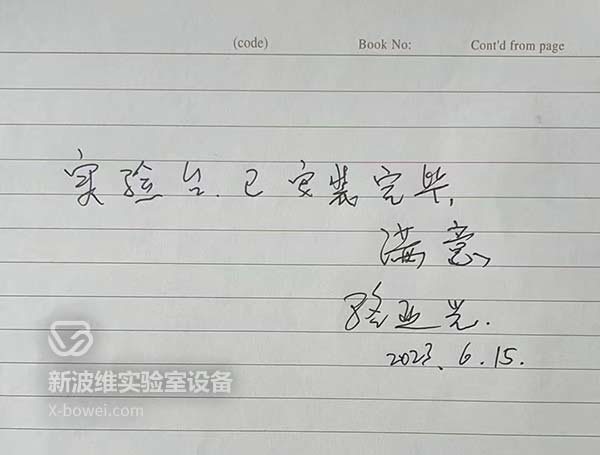 (code) Book No: Cont'd from page
实验台.已安装完毕,
满意
亚光.
2023.6.15.
新波维实验室设备
X-bowei.com